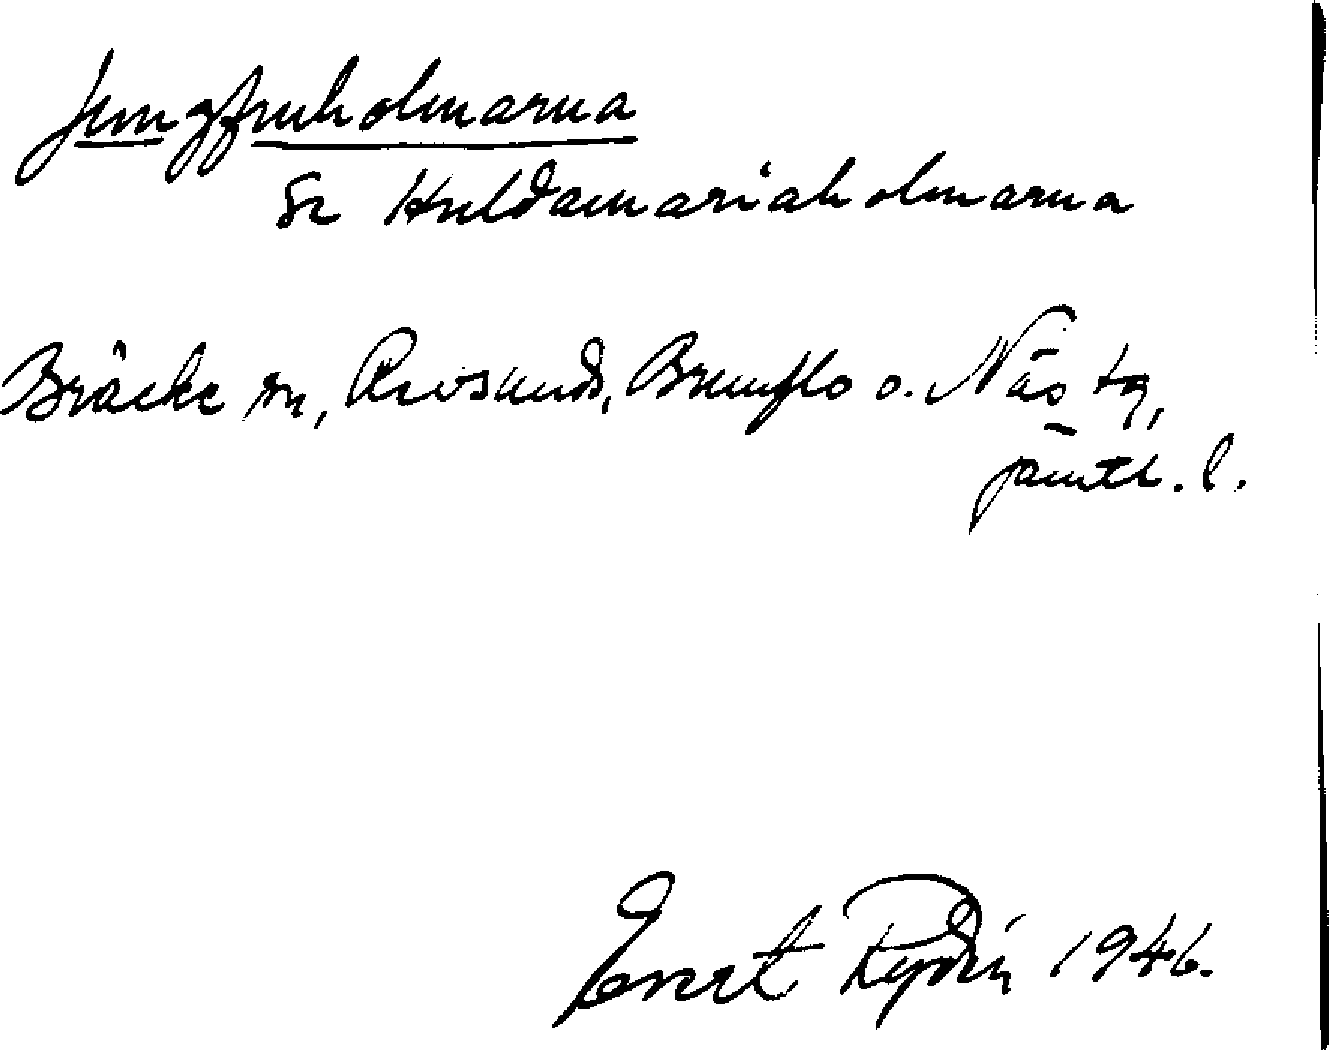 Jungfruholmarna
Se Huldamariaholmarna
Bräcke sn, Revsunds, Brunflo o. Näs tg,
Jämtl. l.
Evert Rydin 1946.